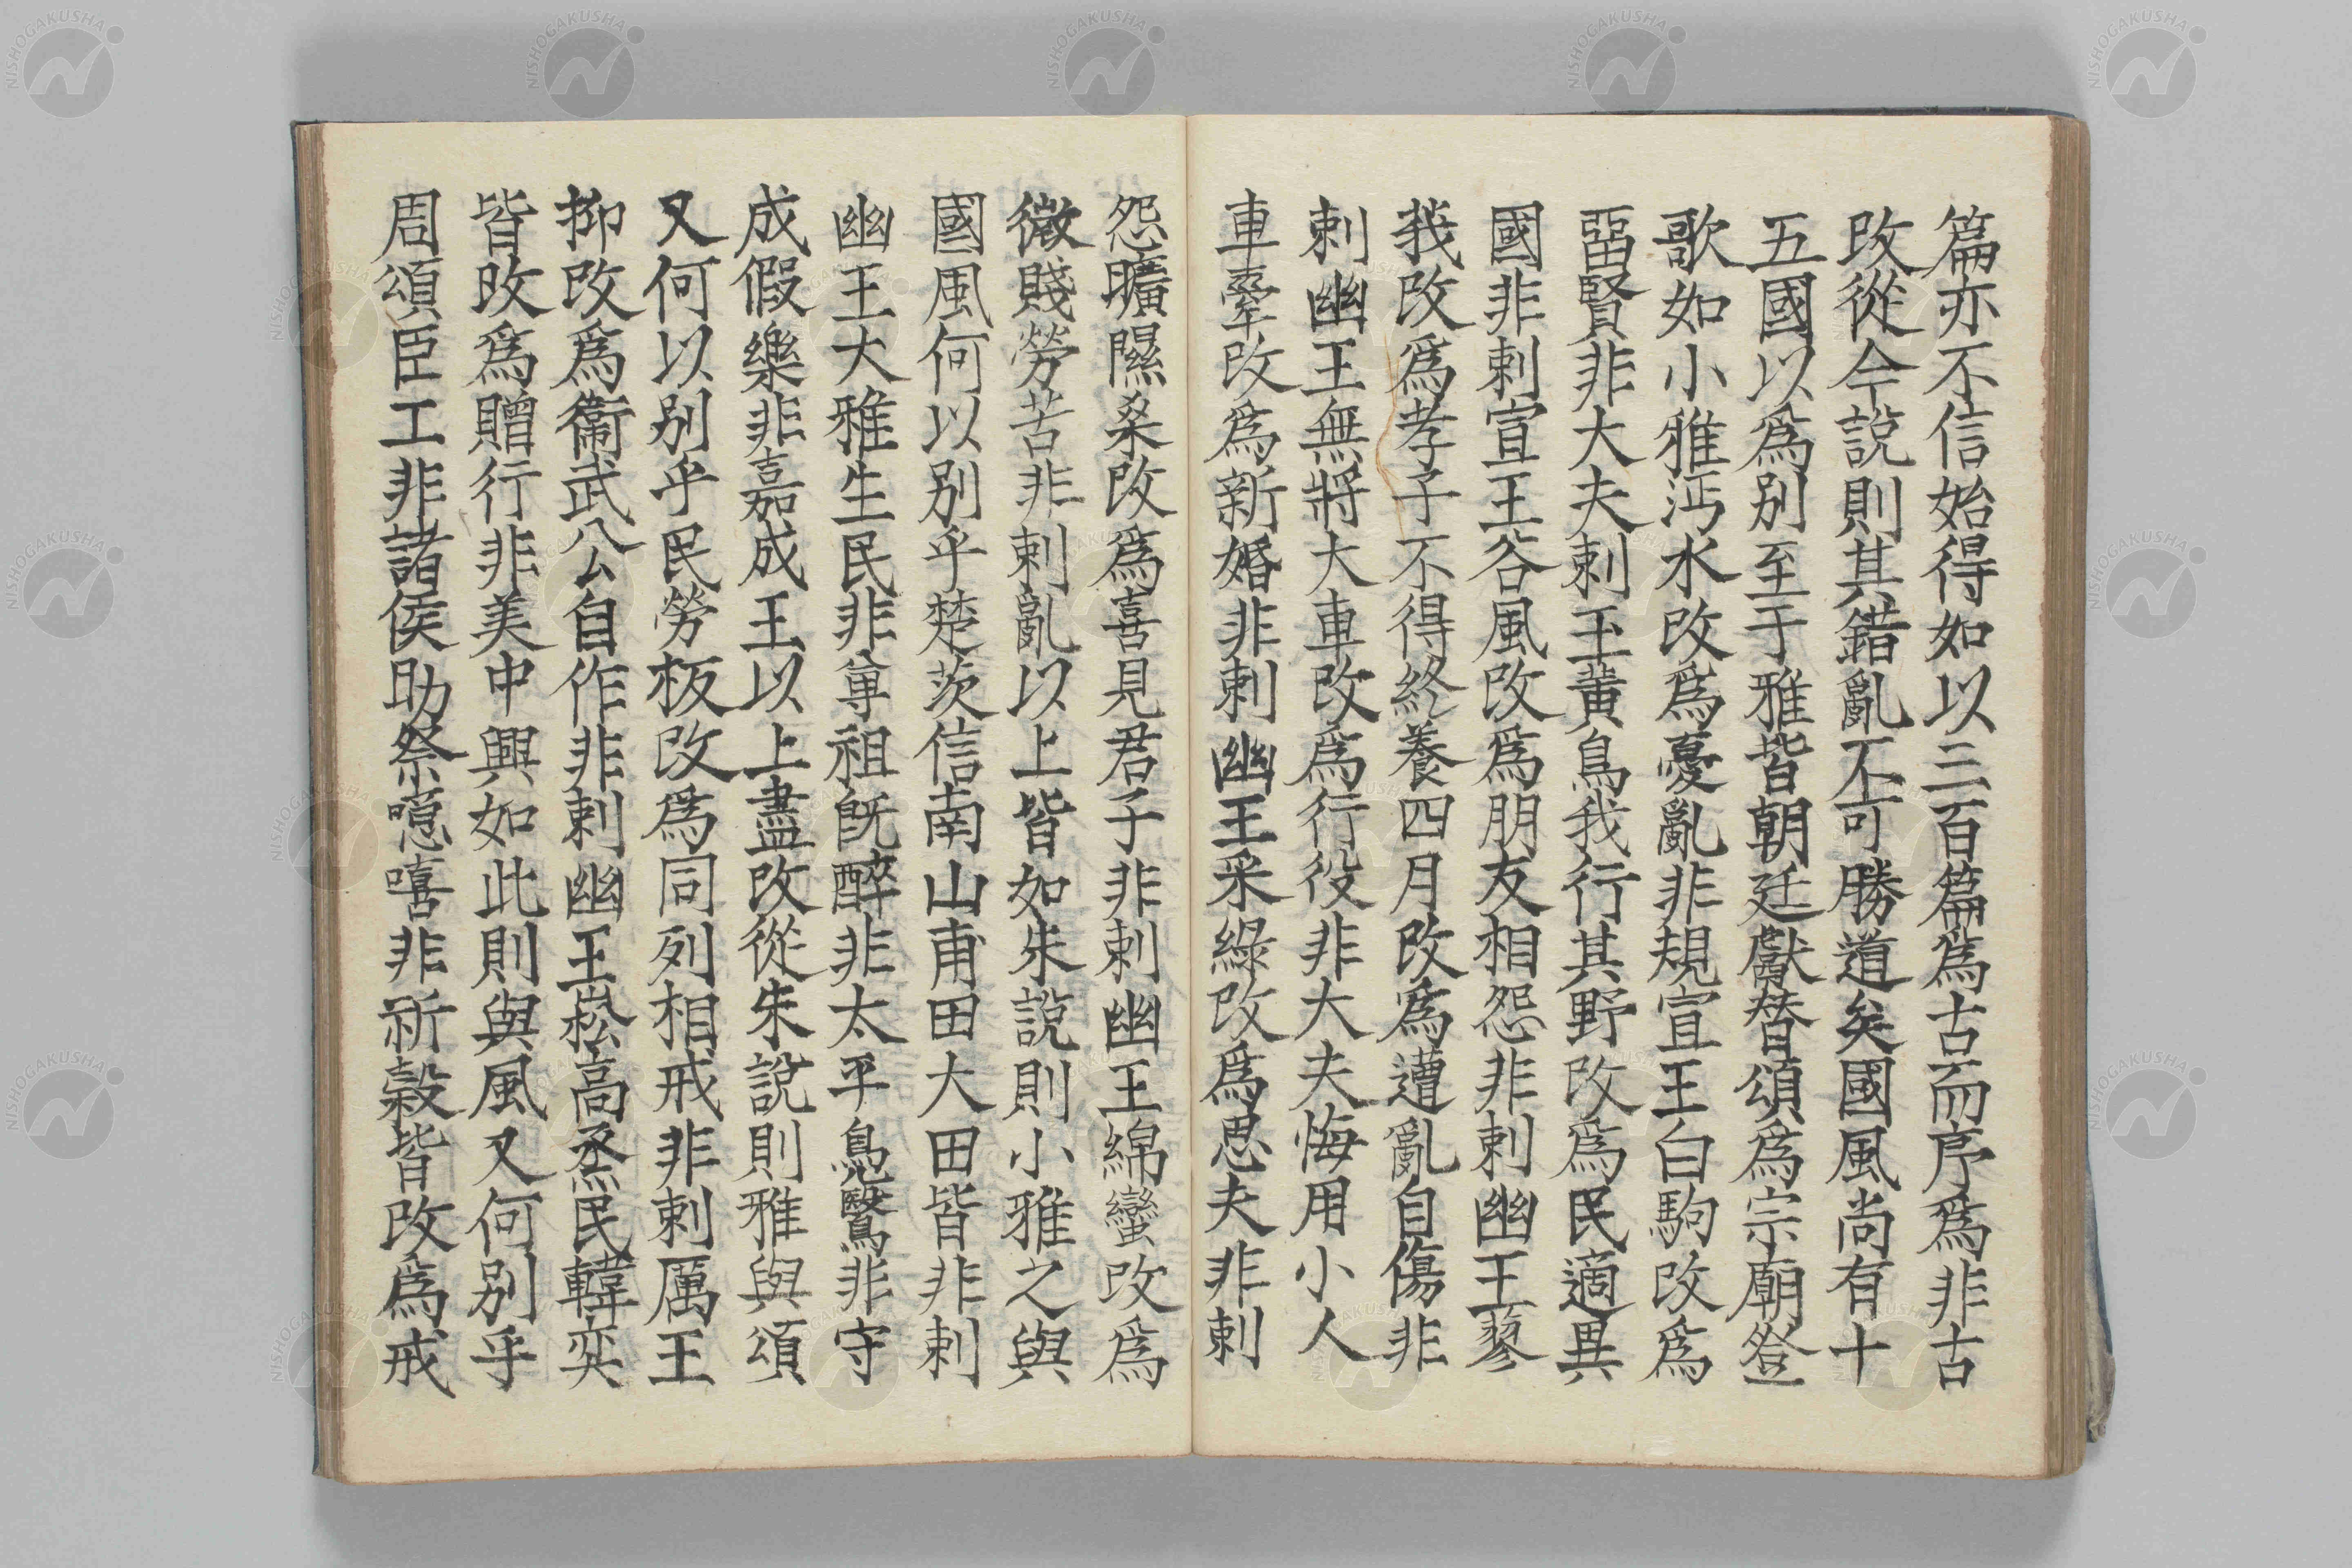 篇亦不信始得如以三百篇爲古而序爲非古
改從今說則其錯亂不可勝道矣國風尚有十
五國以爲別至于雅皆朝廷獻替頌爲宗廟登
歌如小雅沔水改爲憂亂非規宣王白駒改爲
留賢非大夫刺王黃鳥我行其野改爲民適異
國非刺宣王谷風改爲朋友相怨非刺幽王蓼
莪改爲孝子不得終養四月改爲遭亂自傷非
刺幽王無將大車改爲行役非大夫悔用小人
車舝改爲新婚非刺幽王采綠改爲思夫非刺
怨曠隰桑改爲喜見君子非刺幽王綿蠻改爲
微賤勞苦非刺亂以上皆如朱說則小雅之與
國風何以別乎楚茨信南山甫田大田皆非刺
幽王大雅生民非尊祖旣醉非太平鳧鷖非守
成假樂非嘉成王以上盡改從朱說則雅與頌
又何以別乎民勞板改爲同列相戒非刺厲王
抑改爲衞武公自作非刺幽王崧高烝民韓奕
皆改爲贈行非美中興如此則與風又何別乎
周頌臣工非諸侯助祭噫嘻非祈穀皆改爲戒
NISHOGAKUSHA